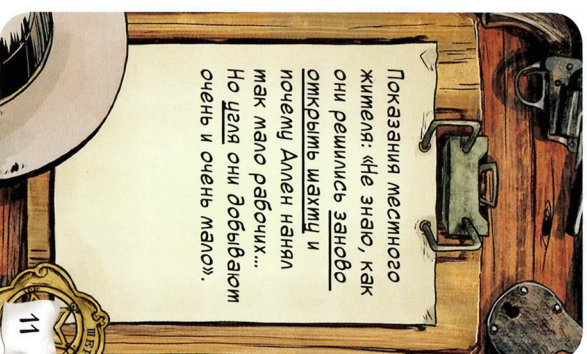 Показания местного
жителя: «Не знаю, как
они решились заново
открыть шахту и
почему Аллен нанял
так мало рабочих...
Но угля они добывают
очень и очень мало».
11